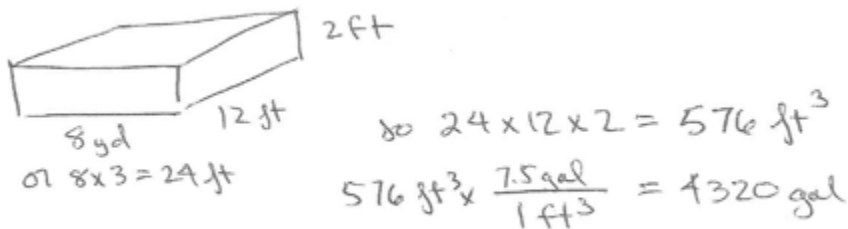 2ft
12 ft
8yd
or 8x3=24ft
so 24x12x2 = 576 ft³
576 ft³ x 7.5gal / 1 ft³ = 4320 gal